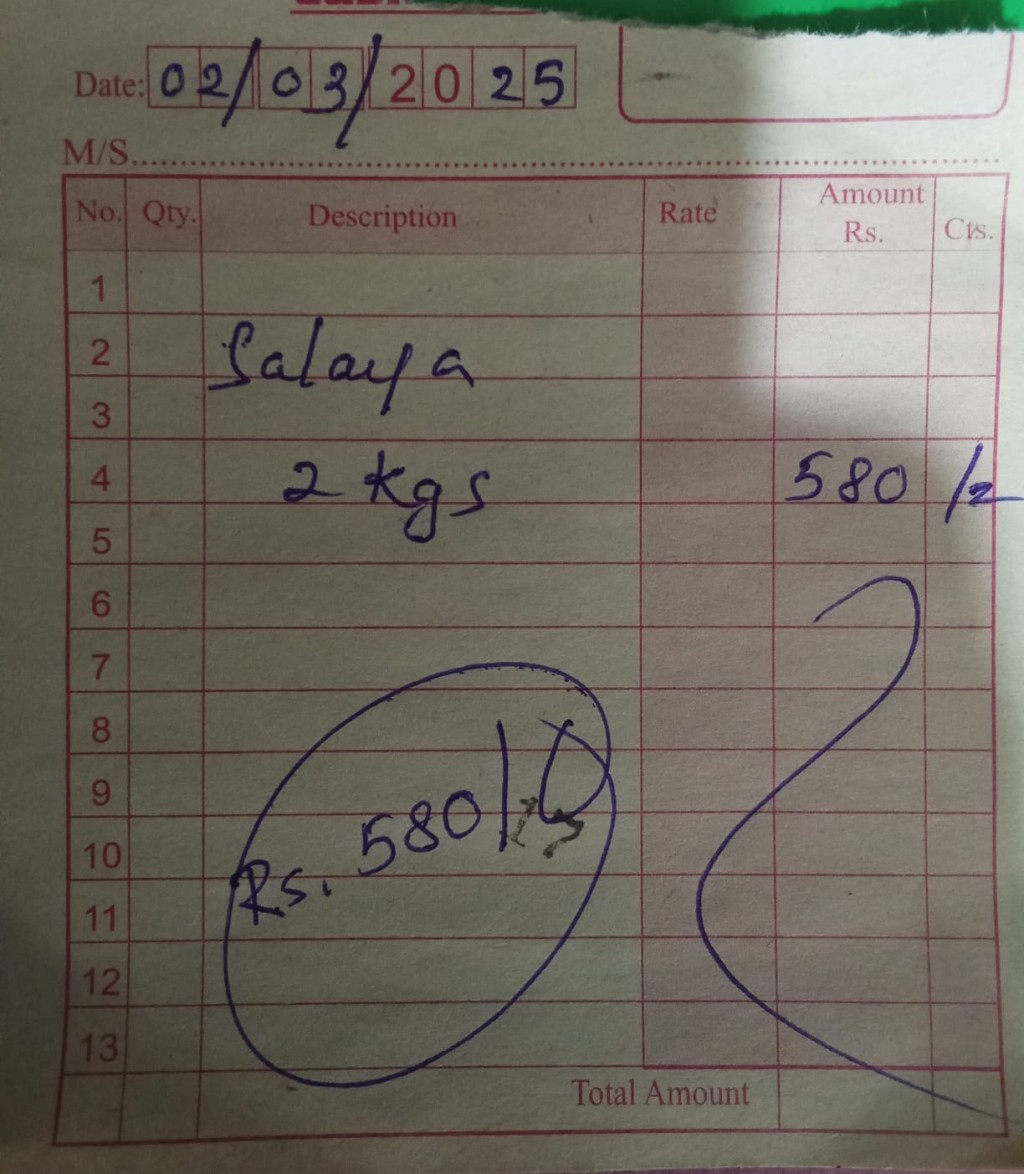 Date: 02/03/2025
M/S
No. Qty. Description Rate Amount Rs. Cts.
1
2 Salaya
3
4 2 kgs 580 /=
5
6
7
8
9
10 Rs. 580/
11
12
13
Total Amount